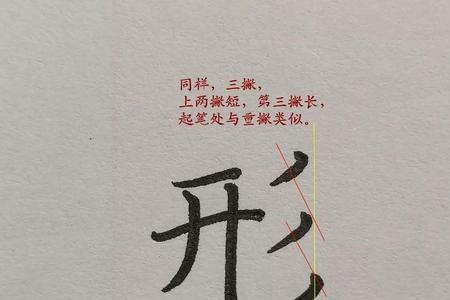 同样，三撇，
上两撇短，第三撇长，
起笔处与重撇类似。
形